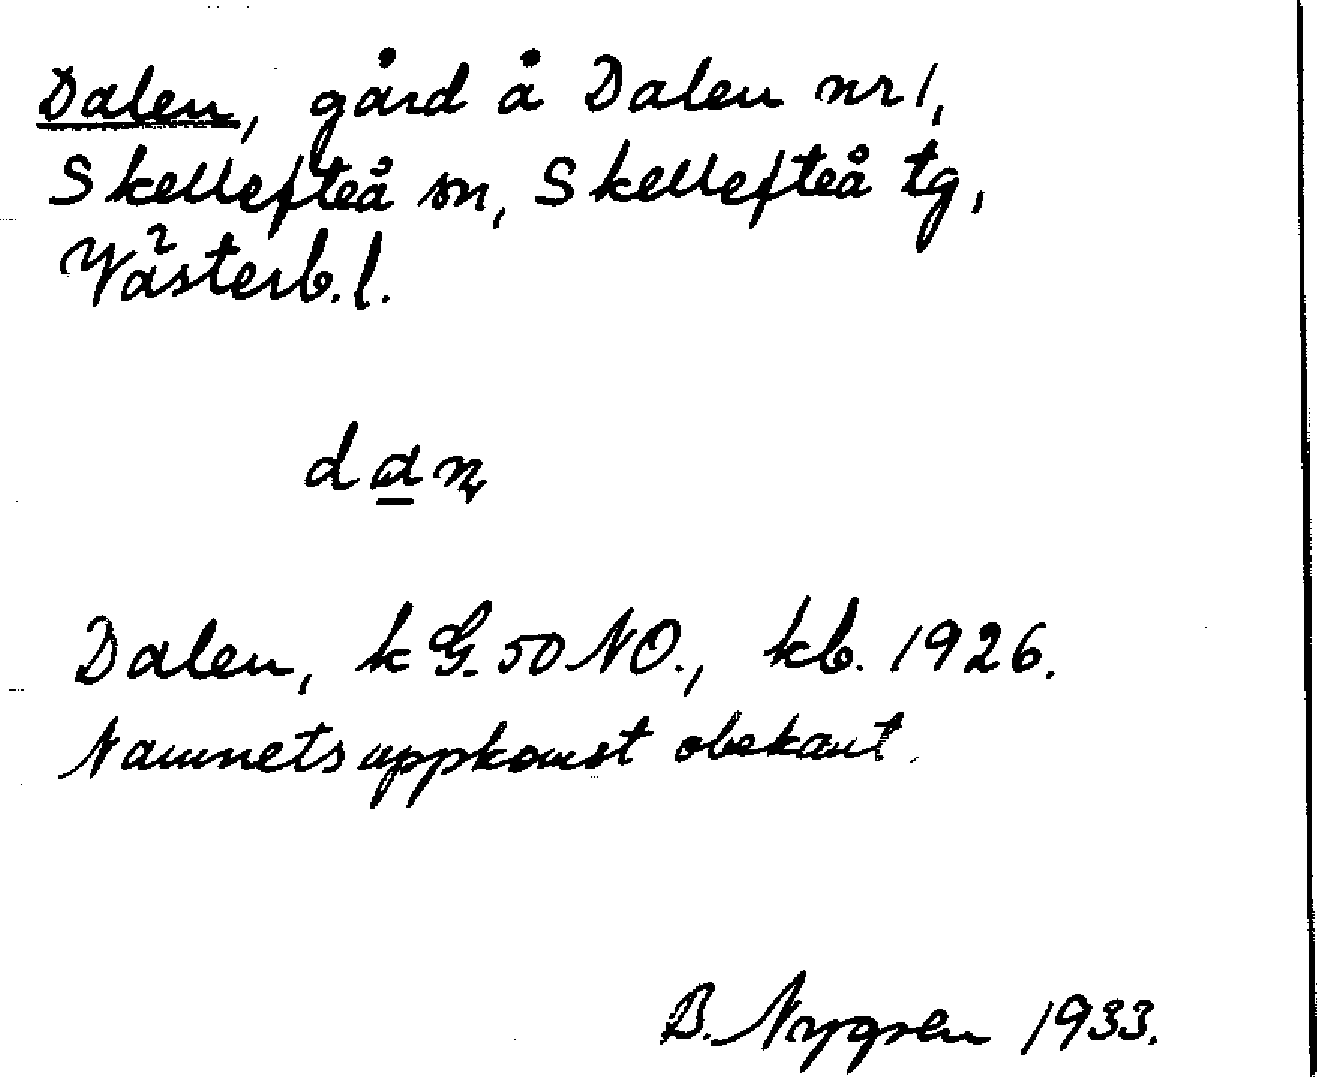 Dalen, gård å Dalen nr 1,
Skellefteå sn, Skellefteå tg,
Västerb. l.
dan
Dalen, k G. 50 NO., kb. 1926.
Namnets uppkomst obekant.
B. Nygren 1933.